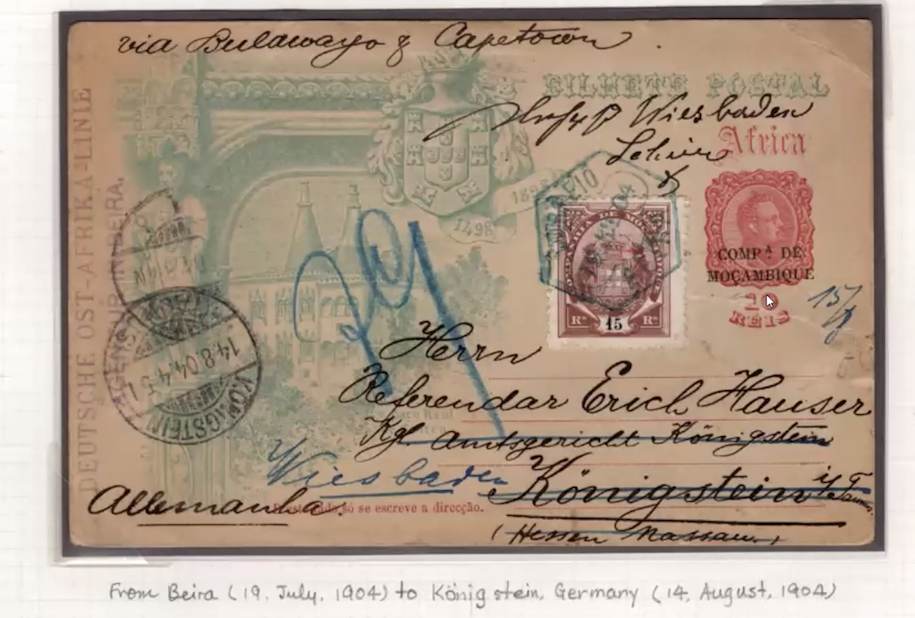 via Bulawayo & Capetown
BILHETE POSTAL
Wiesbaden
Africa
DEUTSCHE OST-AFRIKA-LINIE
AGENTUR IN BEIRA.
1498
CORREIO
COMPA. DE
MOÇAMBIQUE
REIS
15
Rs 15 Rs
Herrn
Referendar Erich Hauser
Kgl. Amtsgericht Königstein
Wiesbaden
Königstein i/Taunus.
KÖNIGSTEIN
14.8.04.4-5
Allemanha.
só se escreve a direcção.
(Hessen Nassau.)
From Beira (19, July, 1904) to Königstein, Germany (14, August, 1904)